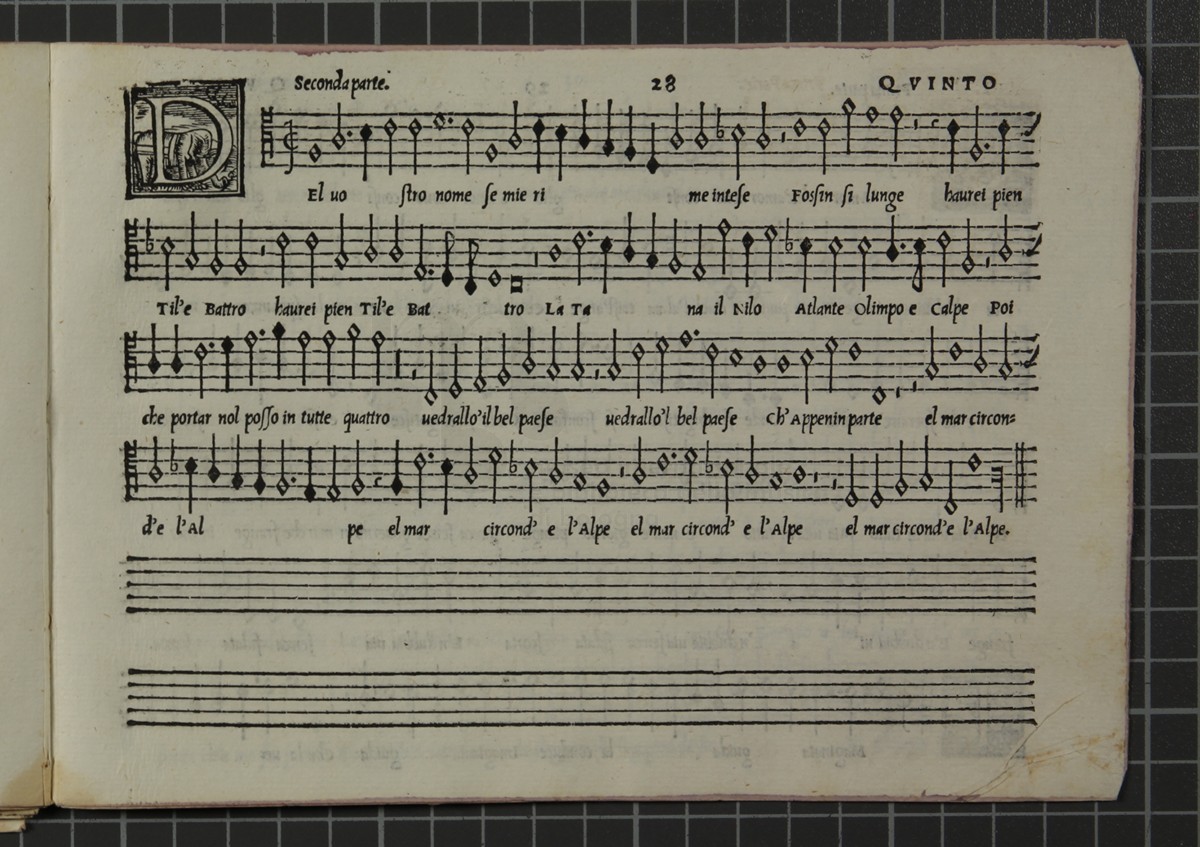 Seconda parte. 28 QVINTO
DEl uo ſtro nome ſe mie ri me inteſe Foſſin ſi lunge haurei pien
Til'e Battro haurei pien Til'e Bat tro La Ta na il Nilo Atlante Olimpo e Calpe Poi
che portar nol poſſo in tutte quattro uedrallo'il bel paeſe uedrallo'l bel paeſe Ch'Appennin parte el mar circon=
d'e l'Al pe el mar circond' e l'Alpe el mar circond' e l'Alpe el mar circond'e l'Alpe.